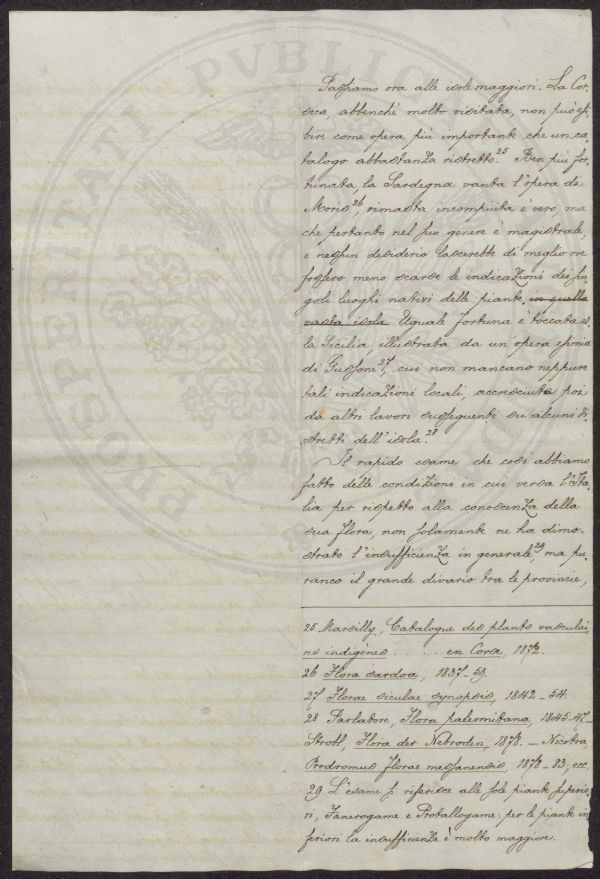 Passiamo ora alle isole maggiori. La Cor-
sica, abbenchè molto visitata, non può esi-
bire come opera più importante che un ca-
talogo abbastanza ristretto.25 Ben più for-
tunata, la Sardegna vanta l'opera di
Moris26, rimasta incompiuta è vero, ma
che pertanto nel suo genere è magistrale,
e nessun desiderio lascerebbe di meglio ove
fossero meno scarse le indicazioni dei sin-
goli luoghi nativi delle piante. in quella
vasta isola Uguale fortuna è toccata al-
la Sicilia, illustrata da un'opera esimia
di Gussone27, cui non mancano neppure
tali indicazioni locali, accresciute poi
da altri lavori susseguenti su alcuni di-
stretti dell'isola.28
Il rapido esame che così abbiamo
fatto delle condizioni in cui versa l'Ita-
lia per rispetto alla conoscenza della
sua flora, non solamente ne ha dimo-
strato l'insufficienza in generale,29 ma pu-
ranco il grande divario tra le provincie,
25 Marsilly, Catalogue des plants vasculai-
res indigènes ..... en Corse, 1872.
26 Flora sardoa, 1837-59.
27 Florae siculae synopsis, 1842-54.
28 Parlatore, Flora palermitana, 1845-47-
Strobl, Flora der Nebroden, 1878. - Nicotra
Prodromus florae messanensis, 1878-83, ecc.
29 L'esame si riferisce alle sole piante superio-
ri, Fanerogame e Protallogame: per le piante in-
feriori la insufficienza è molto maggiore.
PROSPERITATI PVBLICAE